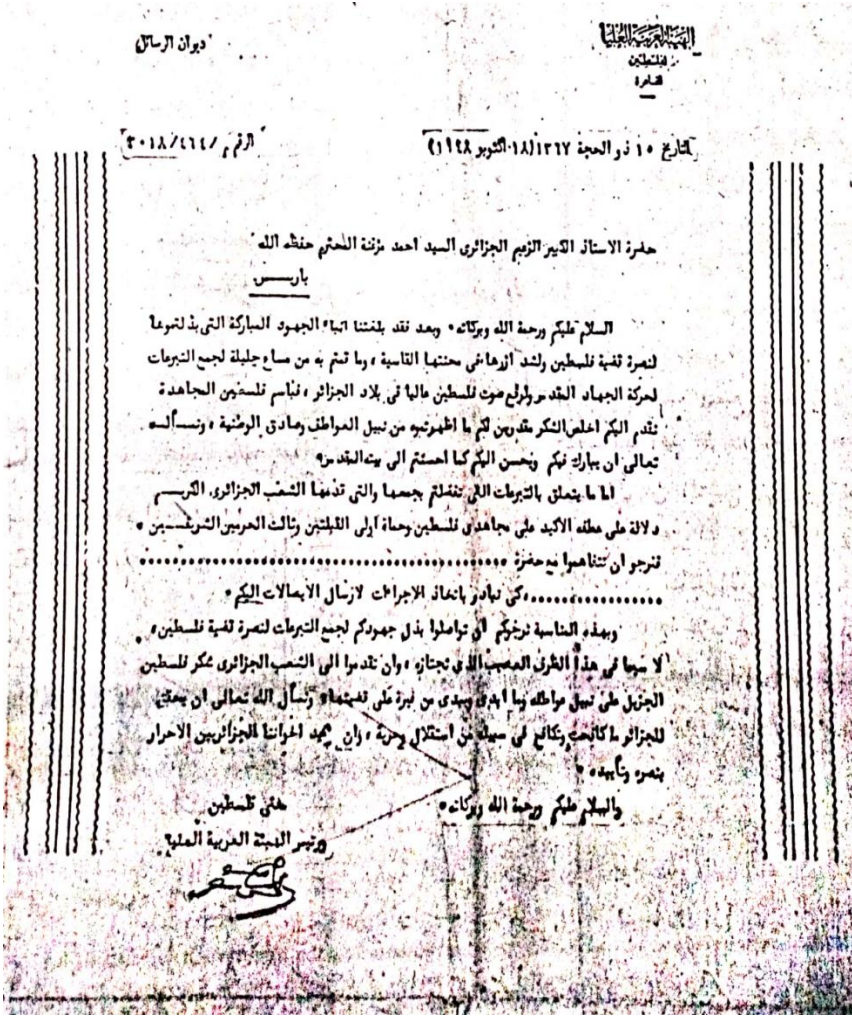 ديوان الرسائل
الهيئة العربية العليا
لفلسطين
القاهرة
التاريخ ١٥ ذو الحجة ١٣٦٧ (١٨ اكتوبر ١٩٤٨)
الرقم م /٤٦٤/ ٣٠١٨
حضرة الاستاذ الكبير الزعيم الجزائرى السيد احمد مزغنة المحترم حفظه الله
باريس
السلام عليكم ورحمة الله وبركاته، وبعد فقد بلغتنا انباء الجهود المباركة التى بذلتموها
لنصرة قضية فلسطين ولشد ازرها فى محنتها القاسية ، وما قمتم به من مساع جليلة لجمع التبرعات
لحركة الجهاد المقدس ولرفع صوت فلسطين عاليا فى بلاد الجزائر ، فباسم فلسطين المجاهدة
نقدم اليكم اخلص الشكر مقدرين لكم ما اظهرتموه من نبيل العواطف وصادق الوطنية ، ونسأله
تعالى ان يبارك فيكم ويحسن اليكم كما احسنتم الى بيت المقدس،
اما ما يتعلق بالتبرعات التى تفضلتم بجمعها والتى قدمها الشعب الجزائرى الكريم
دلالة على عطفه الأكيد على مجاهدى فلسطين وحماة أولى القبلتين وثالث الحرمين الشريفين ،
فنرجو ان تتفاهموا مع حضرة ................................................
.................كى نبادر باتخاذ الاجراءات لارسال الايصالات اليكم،
وبهذه المناسبة نرجوكم ان تواصلوا بذل جهودكم لجمع التبرعات لنصرة قضية فلسطين،
لا سيما فى هذا الظرف العصيب الذى تجتازه ، وان تقدموا الى الشعب الجزائرى شكر فلسطين
الجزيل على نبيل عواطفه وما ابدى ويبدى من غيرة على قضيتها، ونسأل الله تعالى ان يحقق
للجزائر ما كافحت وتكافح فى سبيله من استقلال وحرية ، وان يمد اخواننا الجزائريين الاحرار
بنصره وتأييده ،
والسلام عليكم ورحمة الله وبركاته،
مفتى فلسطين
ورئيس الهيئة العربية العليا